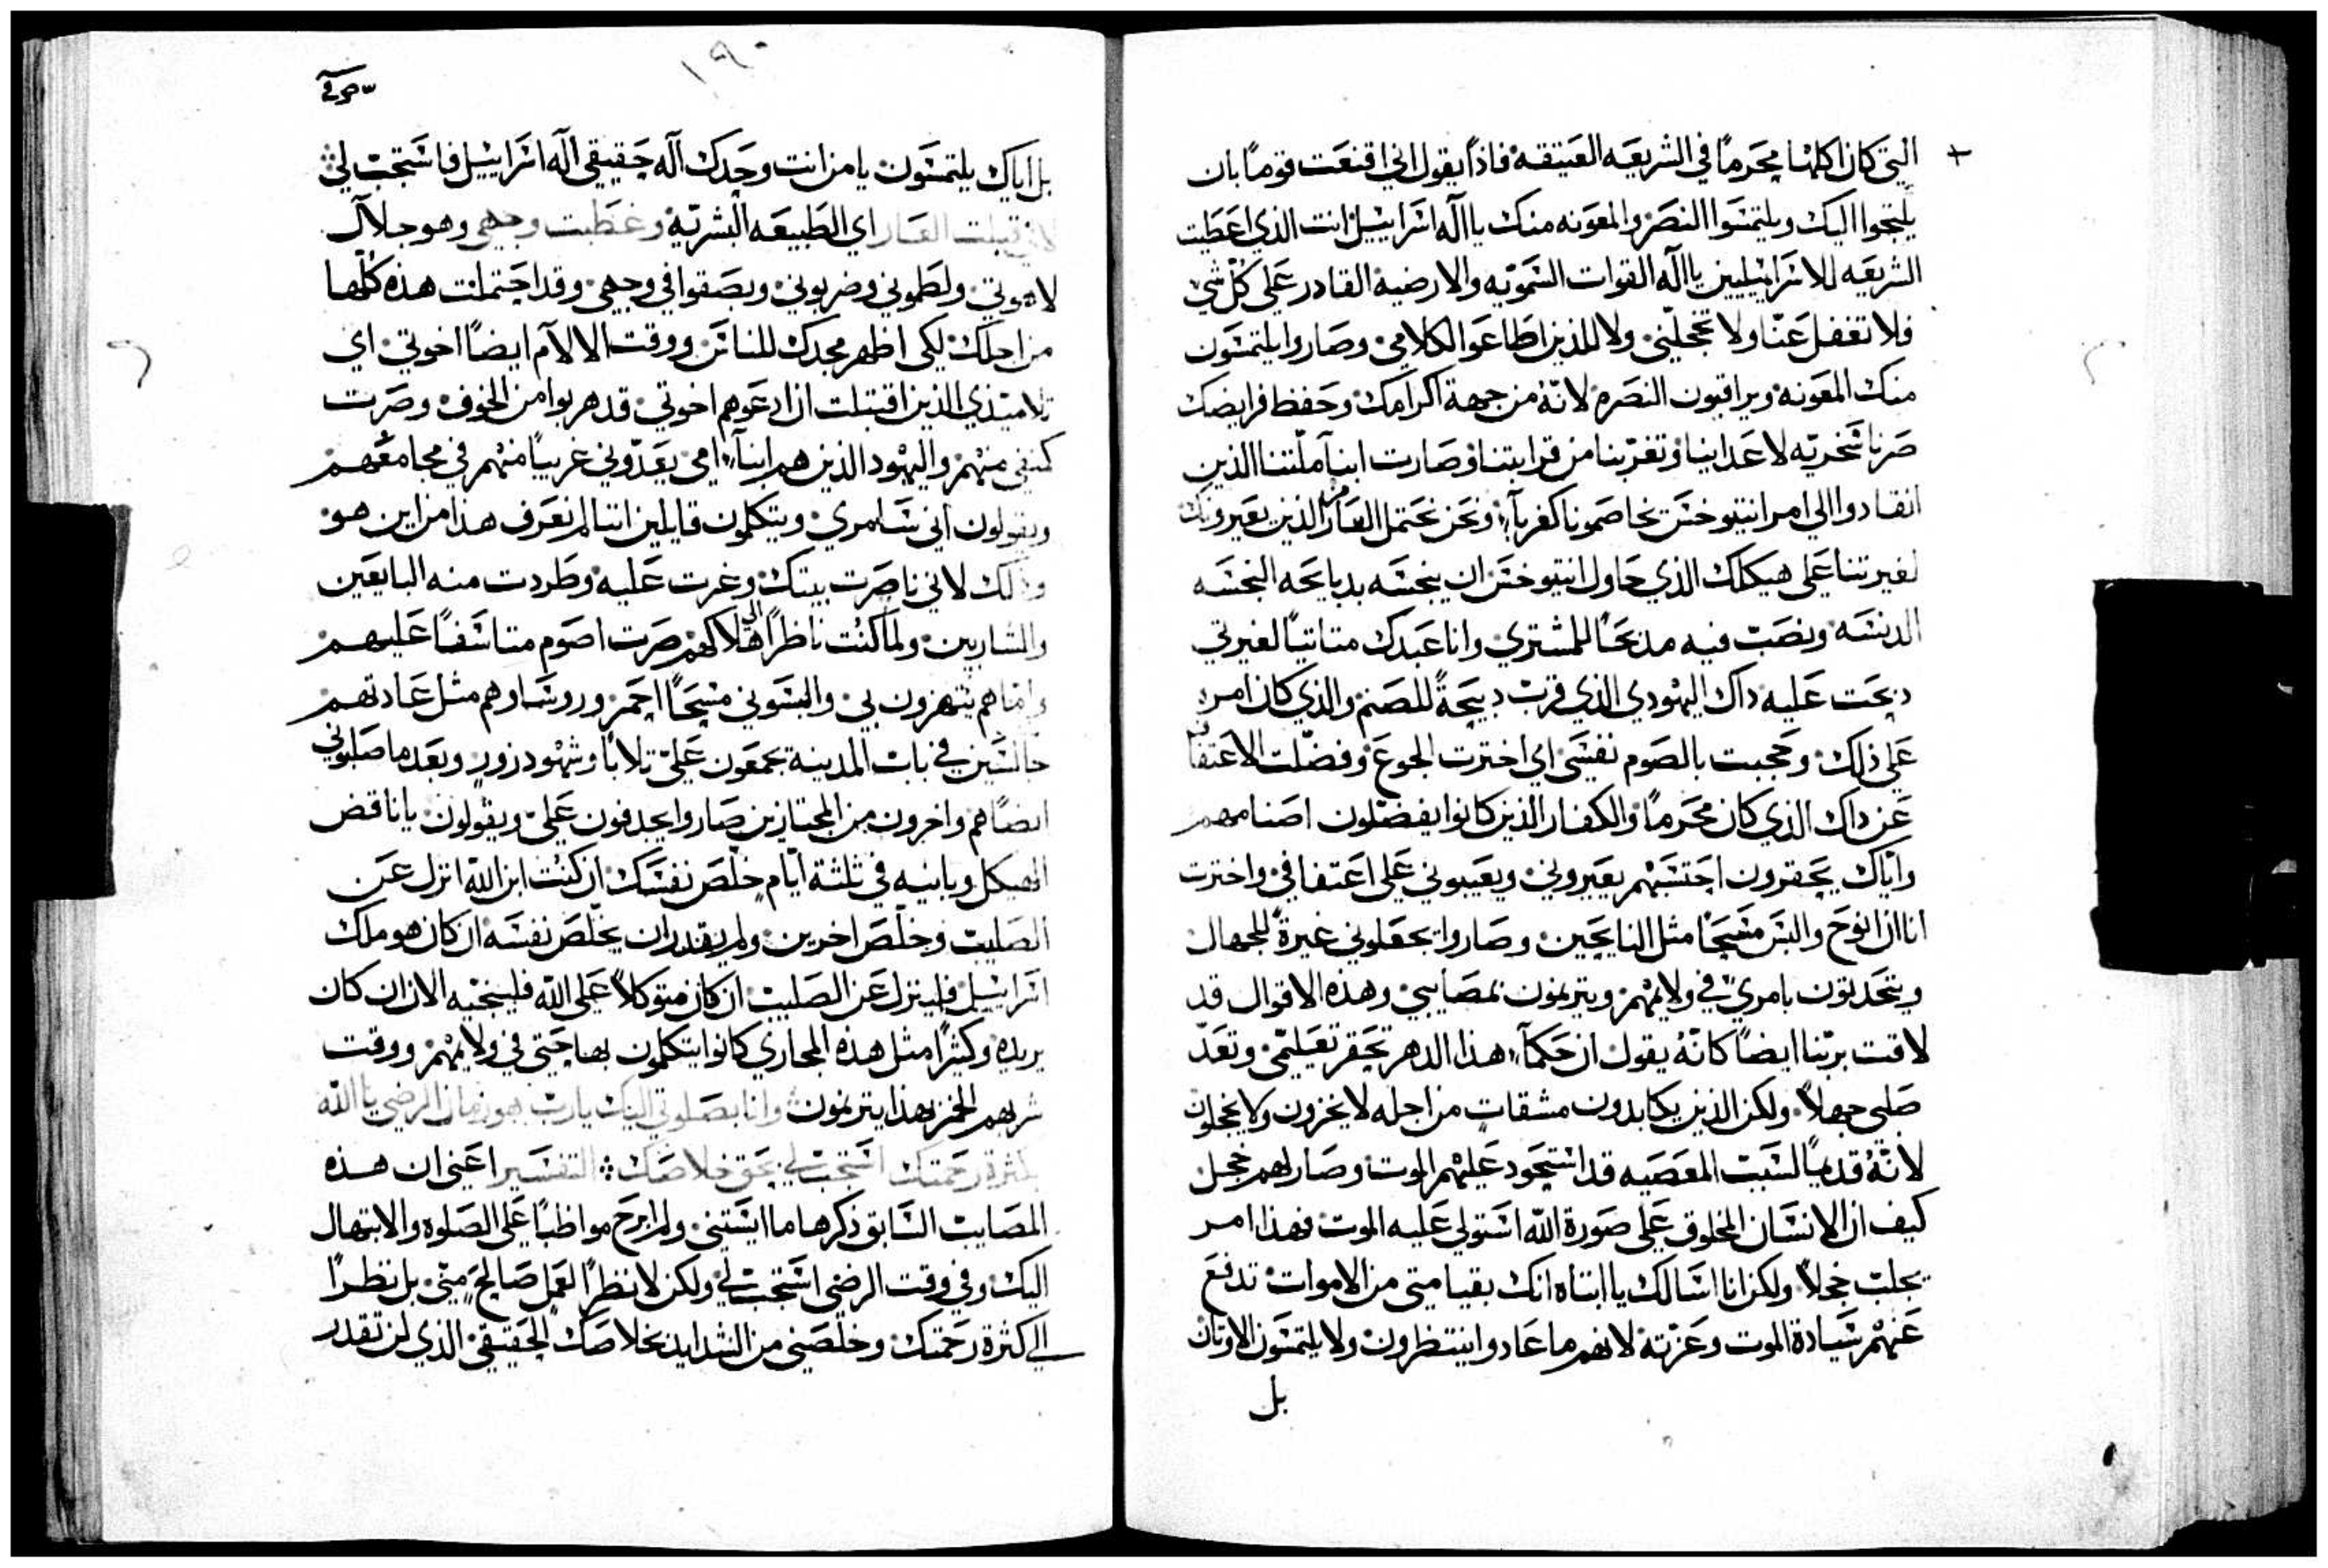 التي كان اكلها محرماً في الشريعه العتيقه فاذاً يقول اني اقنعت قوماً بان
يلتجوا اليك ويلتمسوا النصر والمعونه منك يا اله اسراييل انت الذي اعطيت
الشريعه للاسراييليين يا اله القوات السمويه والارضيه القادر على كل شي
فلا تغفل عنا ولا تخجلني ولا للذين اطاعوا لكلامي وصاروا يلتمسون
منك المعونه ويراقبون النصره لانه من جهة اكرامك وحفظ فرايضك
صرنا سخريه لاعداينا وتغربنا من قرابتنا وصارت ابنآ ملتنا الذين
انقادوا الى امر انتيوخس يخاصمونا كغربآ، ونحن نحتمل العار من الذين يعيرونك
لغيرتنا على هيكلك الذي حاول انتيوخس ان ينجسه بدبايحه النجسه
الدنسه ونصب فيه مدبحاً للمشتري وانا عبدك متاتيا لغيرتي
دبحت عليه داك اليهودي الذي قرب دبيحةً للصنم والذي كان امره
على ذلك وحجبت بالصوم نفسي اي اخترت الجوع وفضلت الاعتفاف
عن داك الذي كان محرماً والكفار الذين كانوا يفضلون اصنامهم
واياك يحقرون احتسبهم يعيروني ويعيبوني على اعتفافي واخترت
انا ان انوح والبس مسحاً مثل النايحين وصاروا يجعلوني عيرةً للجهال
ويتحدثون بامري في ولايمهم ويترنمون بمصايبي وهذه الاقوال قد
لاقت بربنا ايضاً كانه يقول ان حكمآ، هذا الدهر تحقر تعليمي وتعد
صلبي جهلاً ولكن الذين يكابدون مشقات من اجله لا يخزون ولا يخجلون
لانه قديماً لسبب المعصيه قد استحود عليهم الموت وصار لهم خجل
كيف ان الانسان المخلوق على صورة الله استولى عليه الموت فهذا امر
يجلب خجلاً ولكن انا اسالك يا ابتاه انك بقيامتي من الاموات تدفع
عنهم سيادة الموت وعزته لانهم ما عادوا ينتظرون ولا يلتمسون الاوتان
بل
١٩٠
بل اياك يلتمسون يا من انت وحدك اله حقيقي اله اسراييل فاستجب لي
لاني قبلت العار اي الطبيعه البشريه وغطيت وجهي وهو جلال
لاهوتي ولطموني وضربوني وبصقوا في وجهي وقد احتملت هذه كلها
من اجلك لكي اظهر مجدك للناس ووقت الالآم ايضاً اخوتي اي
تلاميذي الذين اقتبلت ان ادعوهم اخوتي قد هربوا من الخوف وصرت
كمنفي منهم واليهود الذين هم ابنآ، امي يعدوني غريباً منهم في مجامعهم
ويقولون اني سامري ويتكلمون قايلين اننا لم نعرف هذا من اين هو
وذلك لاني ناصرت بيتك وغرت عليه وطردت منه البايعين
والشاربين ولما كنت ناظراً الى هلاكهم صرت اصوم متاسفاً عليهم
واما هم يتهزون بي والبسوني مسحاً احمر وروساوهم مثل عادتهم
جالسين في باب المدينة يجمعون علي تلاباً وشهود زور وبعد ما صلبوني
ايضاً هم واخرون من المجتازين صاروا يجدفون علي ويقولون يا ناقض
الهيكل وبانيه في ثلثة ايام خلص نفسك ان كنت ابن الله انزل عن
الصليب وخلص اخرين ولم يقدر ان يخلص نفسه ان كان هو ملك
اسراييل فلينزل عن الصليب ان كان متوكلاً على الله فلينجيه الان ان كان
يريده وكثيراً مثل هذه المجاري كانوا يتكلمون بها حتى في ولايمهم ووقت
شربهم الخمر بهذا يترنمون وانا بصلوتي اليك يارب هوذا زمان الرضى يا الله
بكثرة رحمتك استجب لي بحق خلاصك التفسير اعني ان هذه
المصايب السابق ذكرها ما ايستني ولم ابرح مواظباً على الصلوه والابتهال
اليك وفي وقت الرضى استجب لي ولكن لا نظراً لعمل صالح مني بل نظراً
الى كثرة رحمتك وخلصني من الشدايد بخلاصك الحقيقي الذي لن تقدر